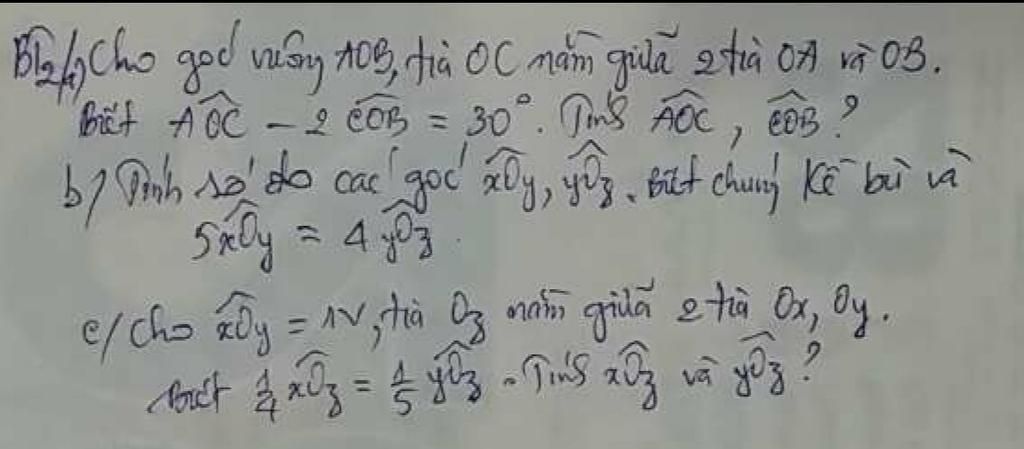 B12/a) Cho góc vuông AOB, tia OC nằm giữa 2 tia OA và OB.
Biết AÔC - 2 CÔB = 30°. Tính AÔC, CÔB?
b/ Tính số đo các góc xÔy, yÔz. Biết chúng kề bù và
5xÔy = 4 yÔz.
c/ Cho xÔy = 1V, tia Oz nằm giữa 2 tia Ox, Oy.
Biết 1/4 xÔz = 1/5 yÔz. Tính xÔz và yÔz?